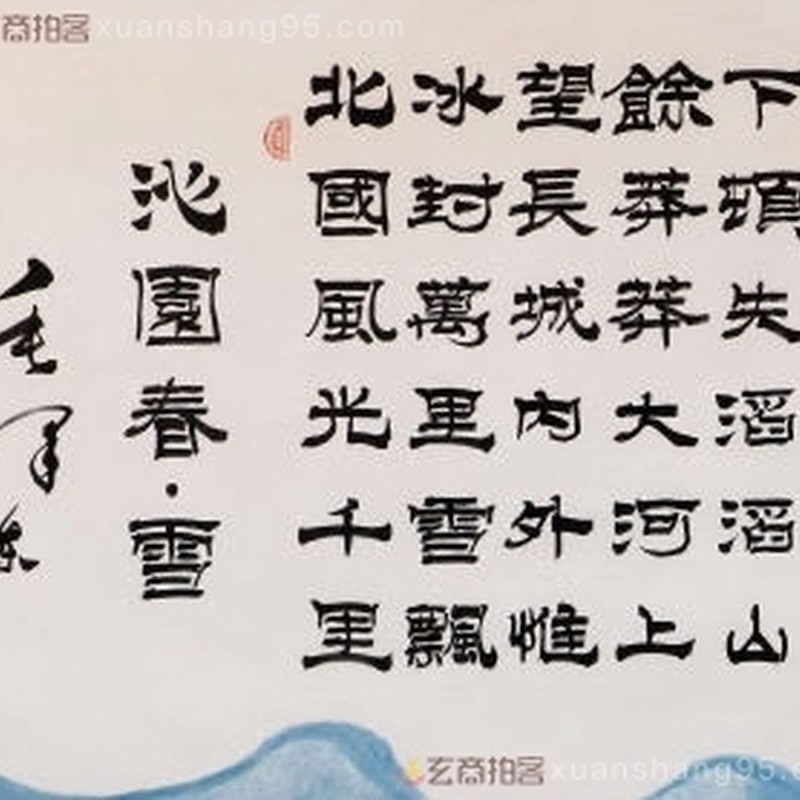 商拍客xuanshang95.com
沁園春·雪
毛泽东
北國風光千里
冰封萬里雪飄
望長城內外惟
餘莽莽大河上
下頓失滔滔山
玄商拍客xuanshang95.c